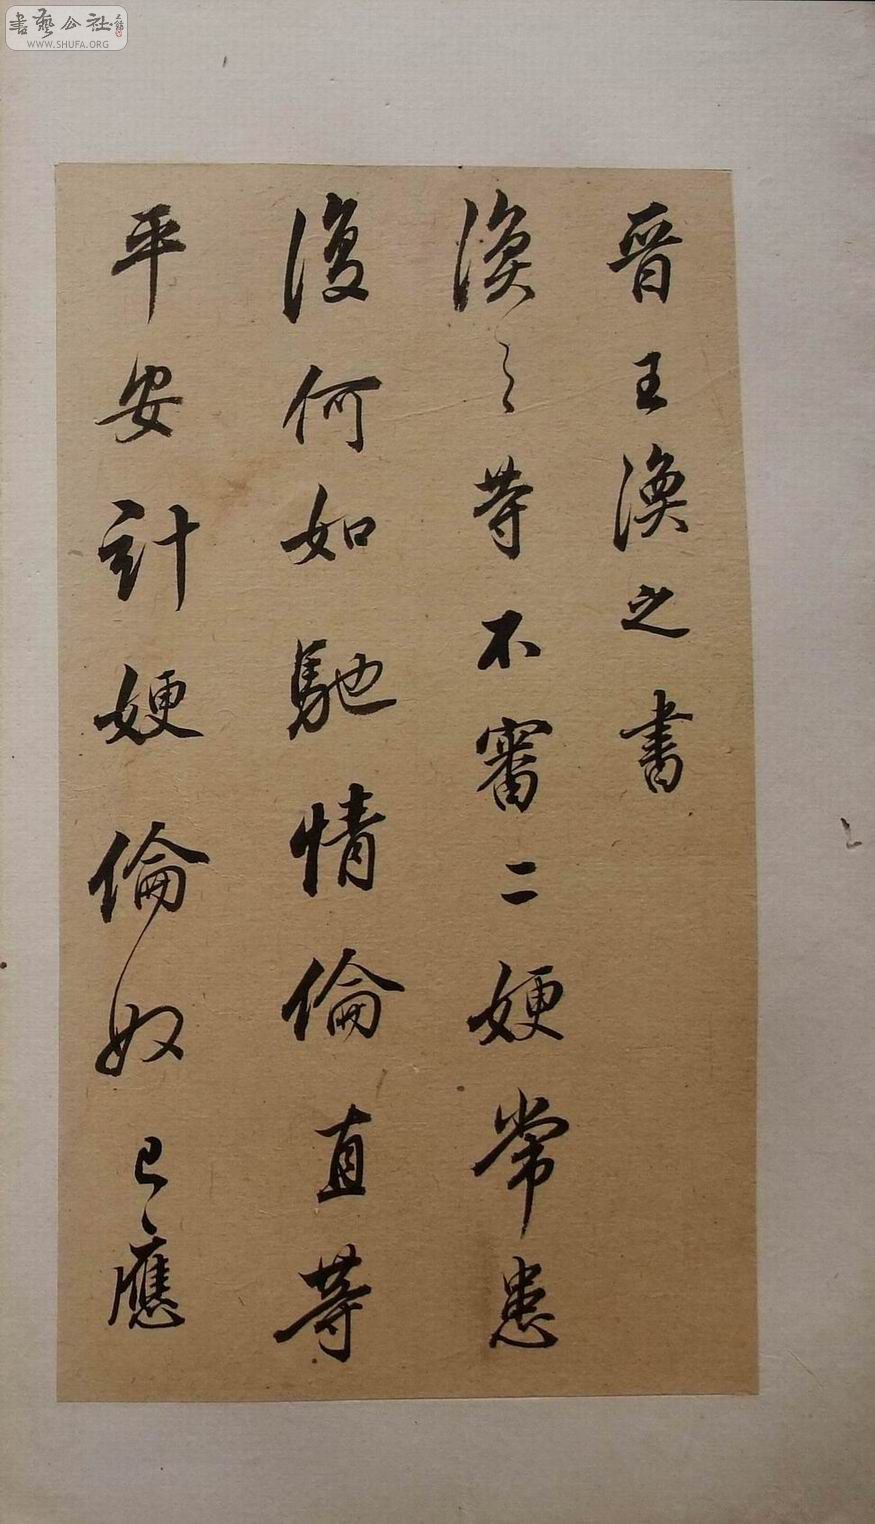 晉王渙之書
渙之等不審二嫂常患
復何如馳情倫直等
平安計嫂倫奴已應
書藝公社
WWW.SHUFA.ORG